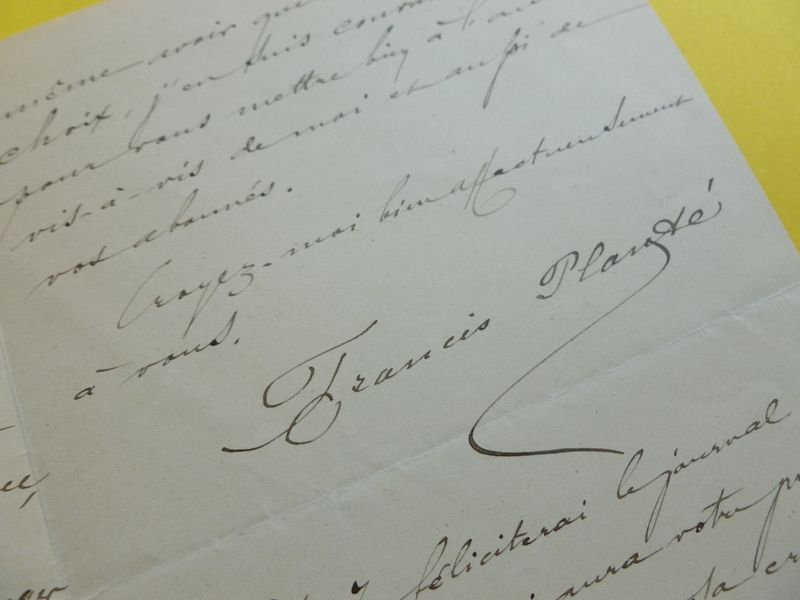 même avoir que
choix, j'en suis conva
pour vous mettre bien à l'ai
vis-à-vis de moi et aussi de
vos abonnés.
Croyez-moi bien affectueusement
à vous.
Francis Planté
féliciterai le journal
aura votre pr
sa cr